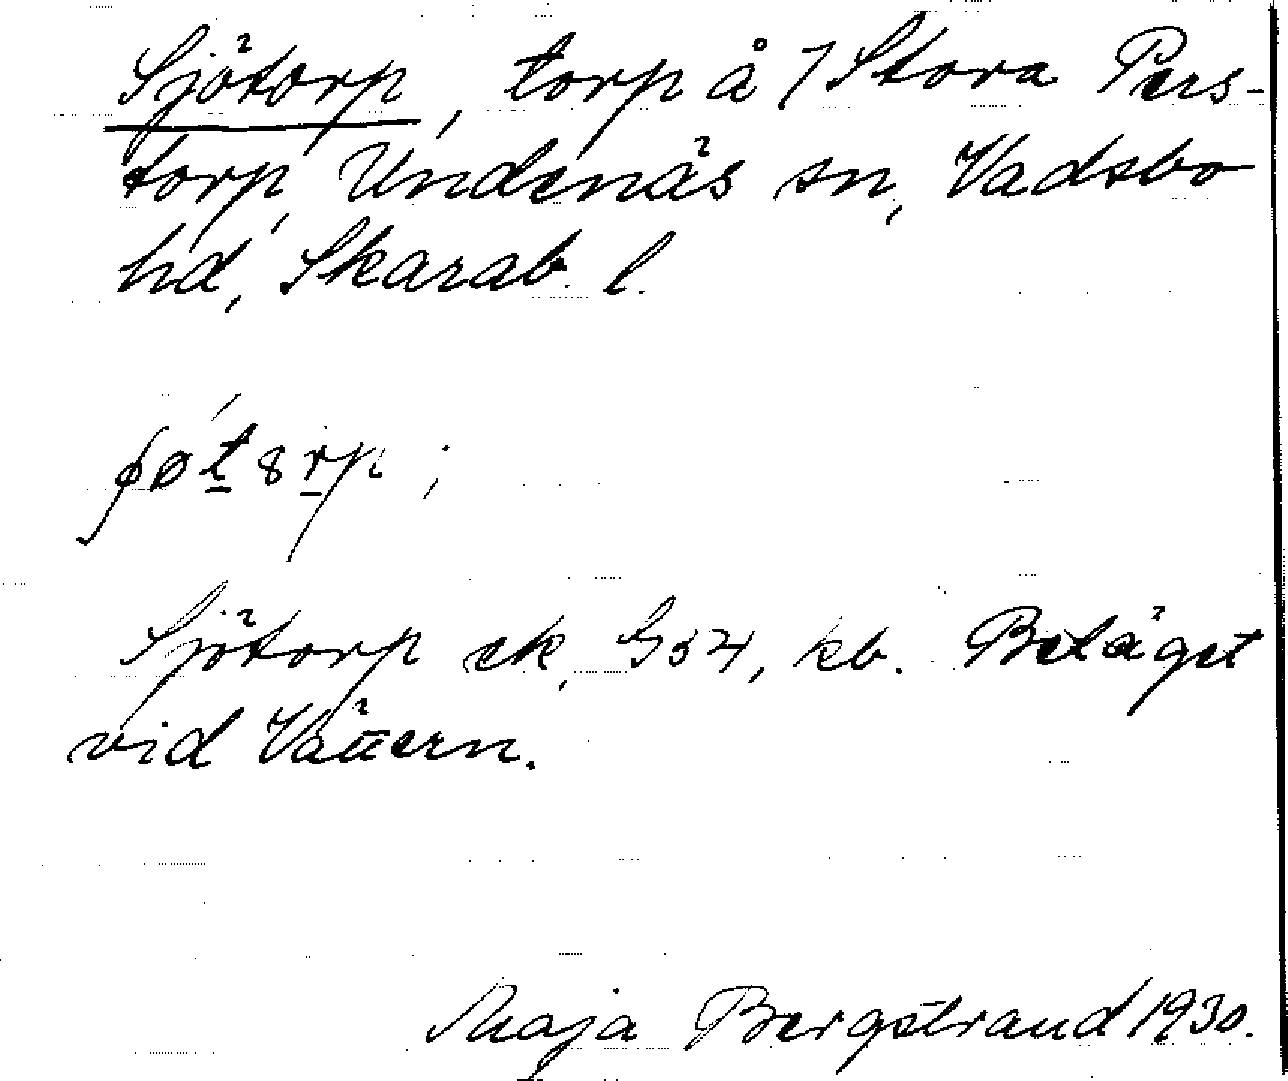 Sjötorp, torp å 7 Stora Pers-
torp, Undenäs sn, Vadsbo
hd, Skarab. l.
Sjötorp ek, G54, kb. Beläget
vid Vättern.
Maja Bergstrand 1930.